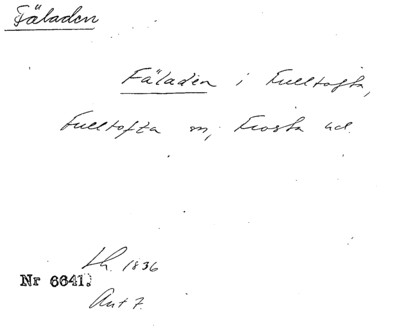 Fäladen
Fäladen i Fulltofta,
Fulltofta sn, Frosta hd.
Lh. 1836
Nr 6641.
Ant 7.